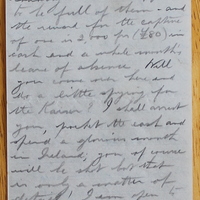 to be full of them - and
the reward for the capture
of one is 2,000 frs (£80) in
cash and a whole month's
leave of absence. Will
you come over here and
do a little spying for
the Kaiser? I shall arrest
you, pocket the cash and
spend a glorious month
in Ireland; you of course
will be shot but that
is only a matter of
detail! I am open to